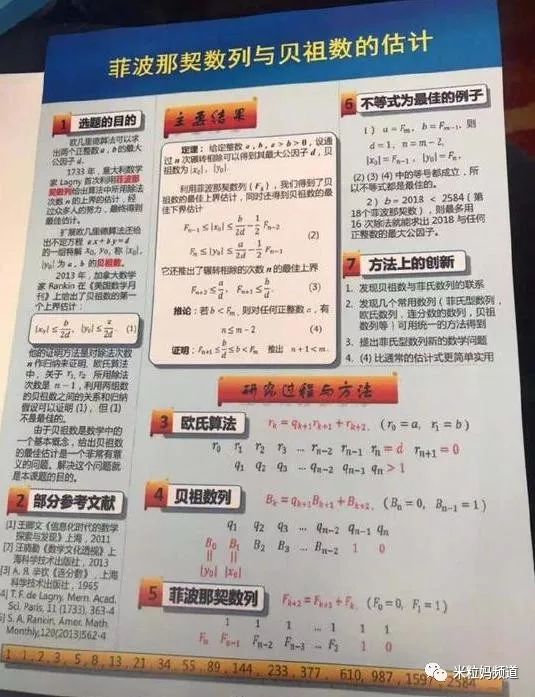 菲波那契数列与贝祖数的估计
1 选题的目的
欧几里德算法可以求
出两个正整数 a, b 的最大
公因子 d.
1733 年,意大利数学
家 Lagny 首次利用菲波那
契数列给出算法中所用除法
次数 n 的上界的估计,经
过众多人的努力,最终得到
最佳估计。
扩展欧几里德算法还给
出不定方程 ax+by=d
的一组特解 x₀, y₀, 称 |x₀|,
|y₀| 为 a, b 的贝祖数。
2013 年,加拿大数学
家 Rankin 在《美国数学月
刊》上给出了贝祖数的第一
个上界估计:
|x₀| ≤ b/2d, |y₀| ≤ a/2d. (1)
他的证明方法是对除法次数
n 作归纳来证明. 欧氏算法
中,关于 r₁, r₂ 所用除法
次数是 n−1,利用两组数
的贝祖数之间的关系和归纳
假设可以证明 (1), 但 (1)
不是最佳的。
由于贝祖数是数学中的
一个基本概念,给出贝祖数
的最佳估计是一个非常有意
义的问题。解决这个问题就
是本课题的目的。
2 部分参考文献
[1] 王卿文《信息化时代的数学
探索与发现》上海,2011
汪晓勤《数学文化透视》上
海科学技术出版社,2013
[3] A. Я. 辛钦《连分数》,上海
科学技术出版社,1965
4] T. F. de Lagny. Mem. Acad.
Sci. Paris, 11 (1733), 363-4
5] S. A. Rankin, Amer. Math.
Monthly,120(2013)562-4
主要结果
定理:给定整数 a, b, a > b > 0, 设通
过 n 次辗转相除可以得到其最大公因子 d, 贝
祖数为 |x₀|, |y₀|.
利用菲波那契数列 {Fₖ}, 我们得到了贝
祖数的最佳上界估计,同时还得到贝祖数的最
佳下界估计
Fₙ₋₁ ≤ |x₀| ≤ b/2d − 1/2 Fₙ₋₂
(2)
Fₙ ≤ |y₀| ≤ a/2d − 1/2 Fₙ₋₁
它还推出了辗转相除的次数 n 的最佳上界
Fₙ₊₂ ≤ a/d, Fₙ₊₁ ≤ b/d. (3)
推论:若 b < Fₘ, 则对任何正整数 a, 有
n ≤ m − 2 (4)
证明:Fₙ₊₁ ≤ b/d ≤ b < Fₘ 推出 n + 1 < m.
6 不等式为最佳的例子
1) a = Fₘ, b = Fₘ₋₁, 则
d = 1, n = m − 2,
|x₀| = Fₙ₋₁, |y₀| = Fₙ.
(2) (3) (4) 中的等号都成立,所
以不等式都是最佳的。
2) b = 2018 < 2584 (第
18个菲波那契数),则最多用
16 次除法就能求出 2018 与任何
正整数的最大公因子。
7 方法上的创新
1. 发现贝祖数与菲氏数列的联系
2. 发现几个常用数列(菲氏型数列,
欧氏数列,连分数的数列,贝祖
数列等)可用统一的方法得到
3. 提出菲氏型数列新的数学问题
4. (4) 比通常的估计式更简单实用
研究过程与方法
3 欧氏算法 rₖ = qₖ₊₁rₖ₊₁ + rₖ₊₂, (r₀ = a, r₁ = b)
r₀ r₁ r₂ r₃ ... rₙ₋₂ rₙ₋₁ rₙ = d rₙ₊₁ = 0
q₁ q₂ q₃ ... qₙ₋₂ qₙ₋₁ qₙ > 1
4 贝祖数列 Bₖ = qₖ₊₁Bₖ₊₁ + Bₖ₊₂, (Bₙ = 0, Bₙ₋₁ = 1)
q₁ q₂ q₃ ... qₙ₋₂ qₙ₋₁ qₙ
B₀ B₁ B₂ B₃ ... Bₙ₋₂ 1 0
|| ||
|y₀| |x₀|
5 菲波那契数列 Fₖ₊₂ = Fₖ₊₁ + Fₖ, (F₀ = 0, F₁ = 1)
1 1 1 ... 1 1 1
Fₙ Fₙ₋₁ Fₙ₋₂ Fₙ₋₃ ... F₂ 1 0
1, 1, 2, 3, 5, 8, 13, 21, 34, 55, 89, 144, 233, 377, 610, 987, 1597, 2584
米粒妈频道